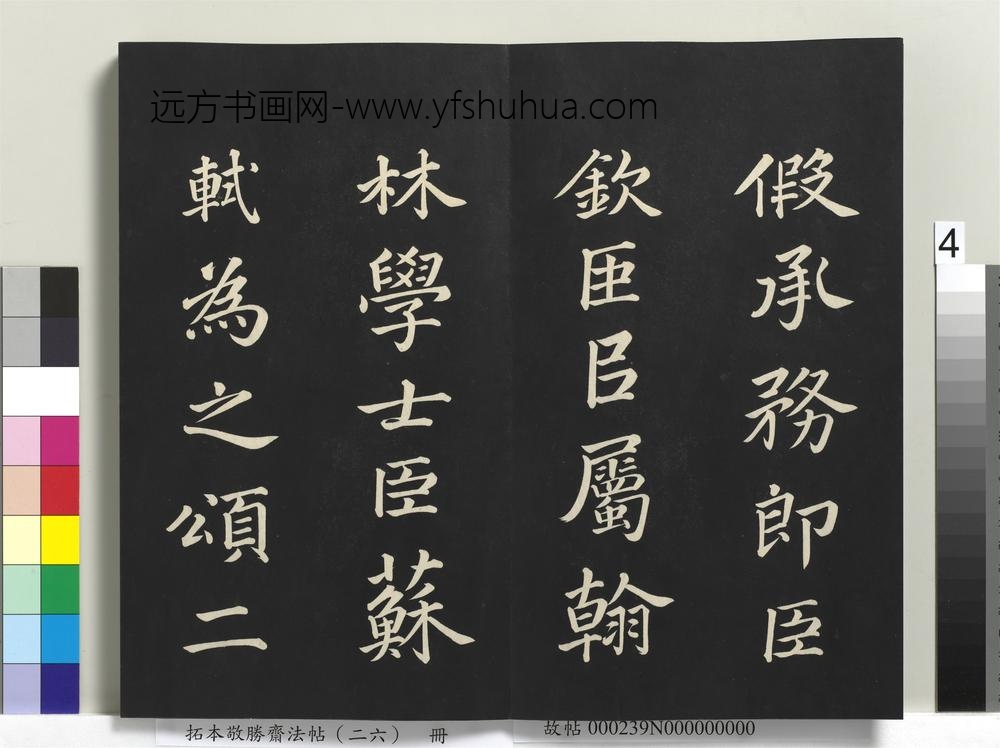 远方书画网-www.yfshuhua.com
假承務郎臣
欽臣臣屬翰
林學士臣蘇
軾為之頌二
4
拓本敬勝齋法帖（二六） 冊
故帖 000239N000000000